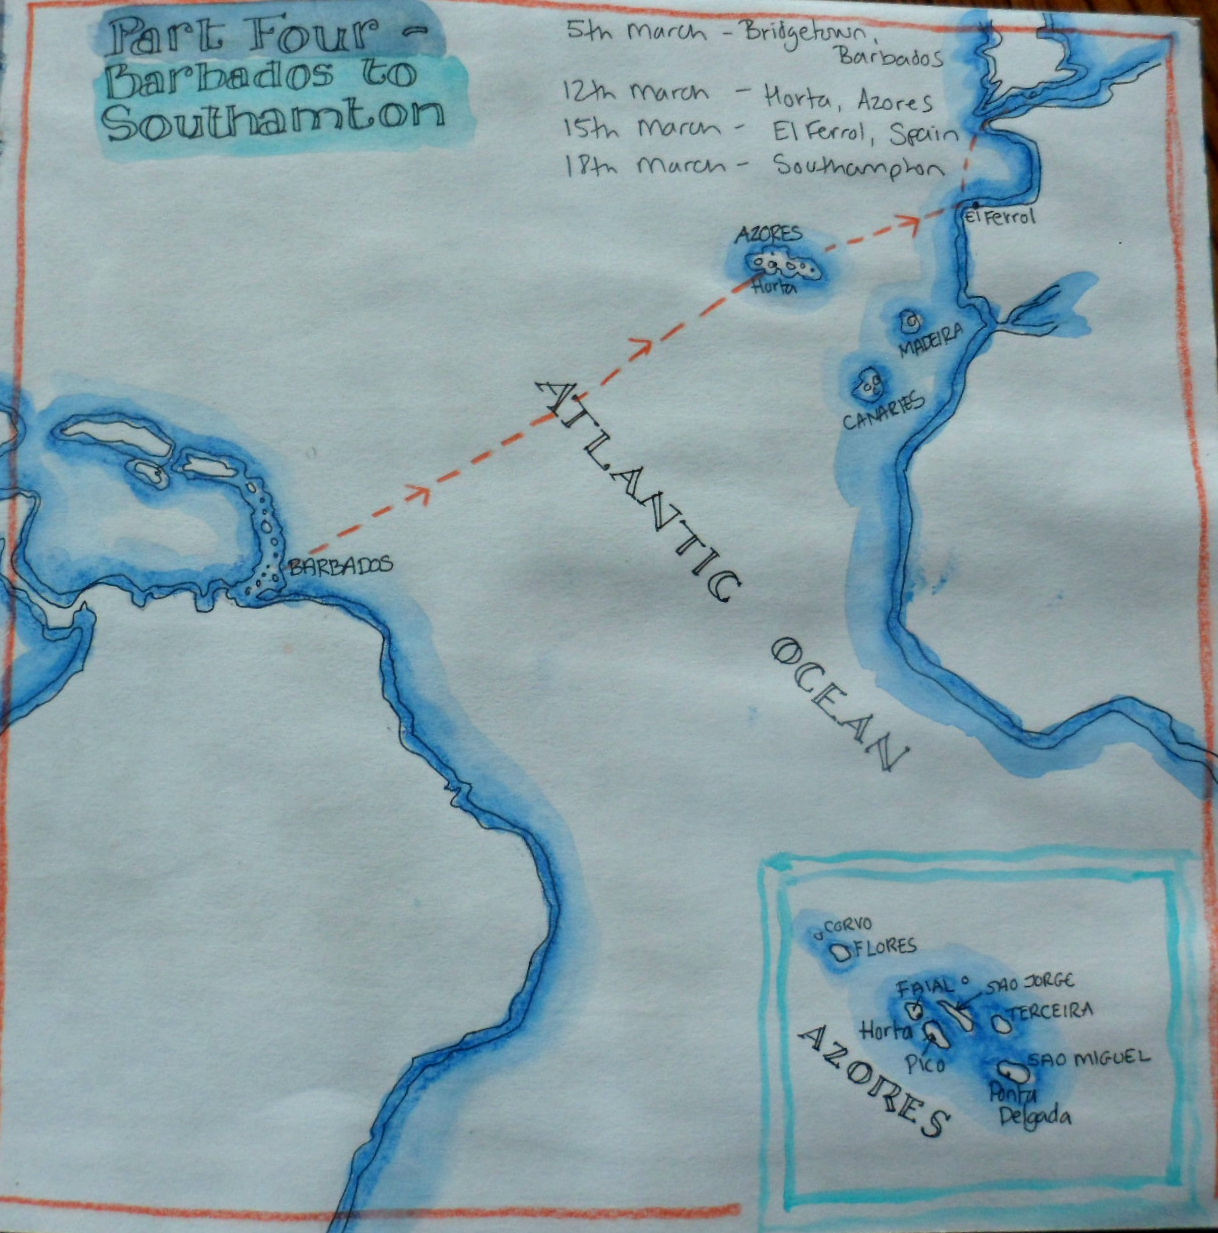 Part Four -
Barbados to
Southamton
5th march - Bridgetown,
Barbados
12th march - Horta, Azores
15th march - El Ferrol, Spain
18th march - Southampton
El Ferrol
AZORES
Horta
MADEIRA
CANARIES
ATLANTIC OCEAN
BARBADOS
CORVO
FLORES
FAIAL
SAO JORGE
TERCEIRA
Horta
Pico
SAO MIGUEL
Ponta
Delgada
AZORES